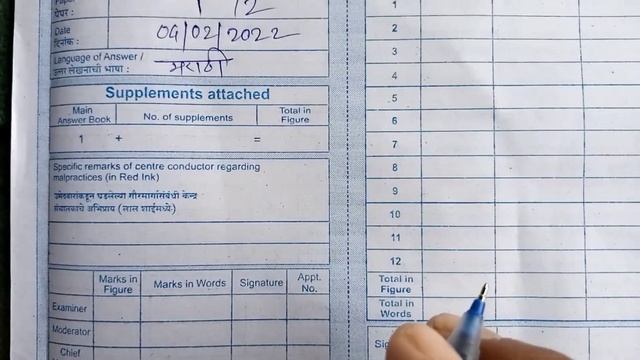 पेपर : 1 / 2
Date
दिनांक : 09/02/2022
Language of Answer /
उत्तर लेखनाची भाषा : मराठी
Supplements attached
Main Answer Book No. of supplements Total in Figure
1 + =
Specific remarks of centre conductor regarding
malpractices (in Red Ink)
उमेदवारांकडून घडलेल्या गैरमार्गासंबंधी केन्द्र
संचालकाचे अभिप्राय (लाल शाईमध्ये)
Marks in Figure Marks in Words Signature Appt. No.
Examiner
Moderator
Chief
1
2
3
4
5
6
7
8
9
10
11
12
Total in
Figure
Total in
Words